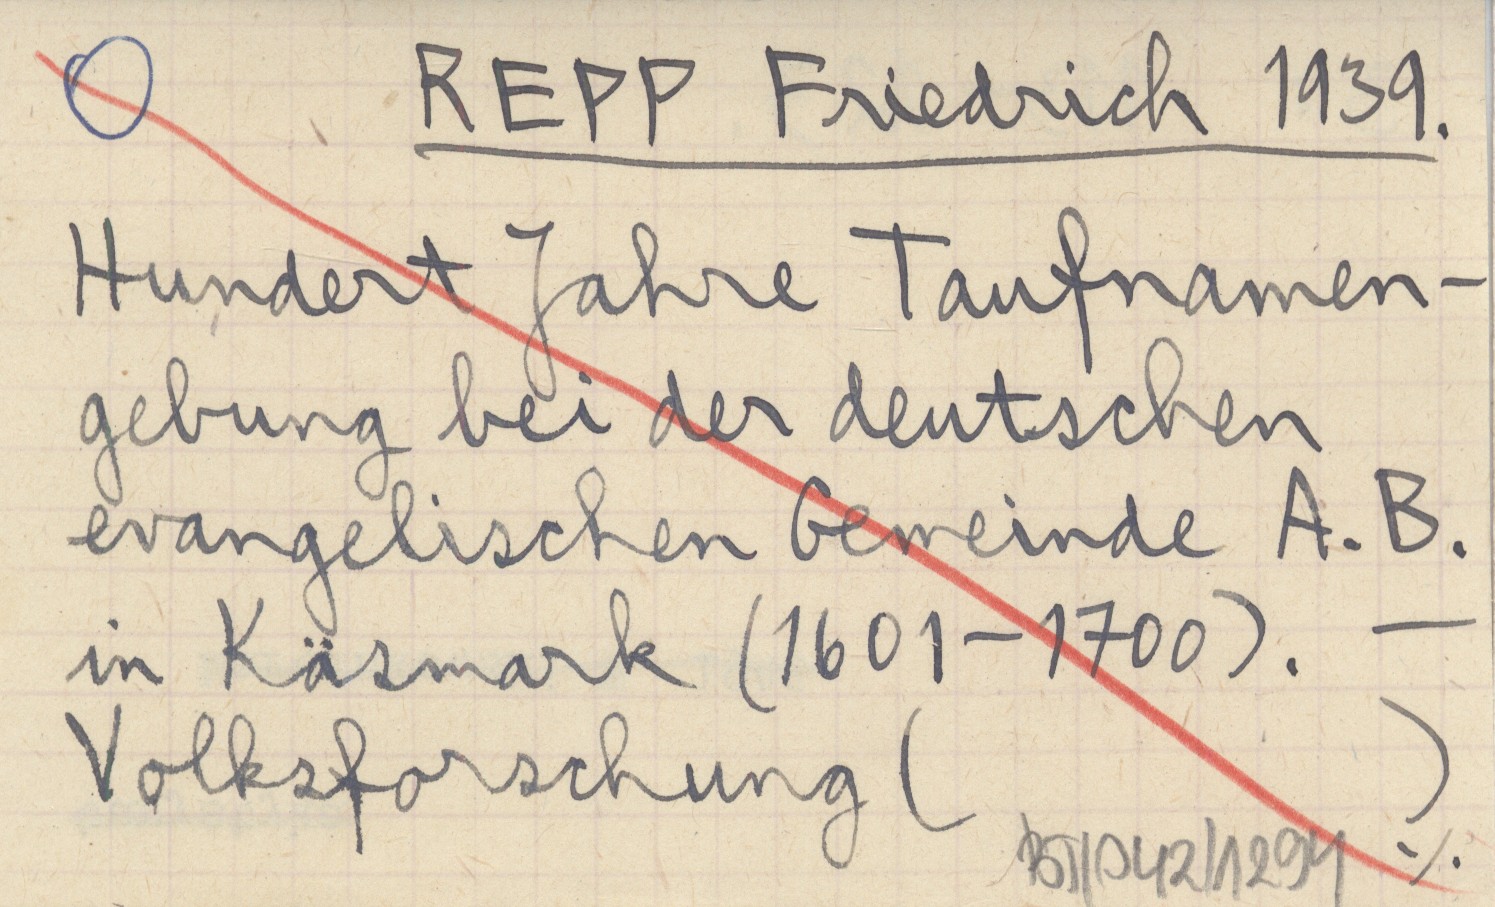 REPP Friedrich 1939.
Hundert Jahre Taufnamen-
gebung bei der deutschen
evangelischen Gemeinde A.B.
in Käsmark (1601-1700). —
Volksforschung ( )
/042/1294 ·/.